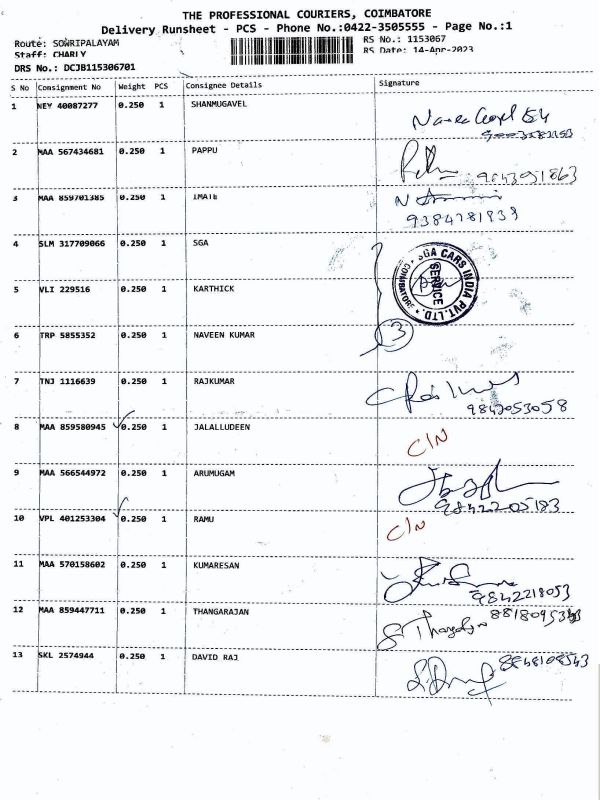 THE PROFESSIONAL COURIERS, COIMBATORE
Delivery Runsheet - PCS - Phone No.:0422-3505555 - Page No.:1
Route: SOWRIPALAYAM RS No.: 1153067
Staff: CHARLY RS Date: 14-Apr-2023
DRS No.: DCJB115306701
S No Consignment No Weight PCS Consignee Details Signature
1 NEY 40087277 0.250 1 SHANMUGAVEL
2 MAA 567434681 0.250 1 PAPPU
9843091863
3 MAA 859701385 0.250 1 IMATE
9384781939
4 SLM 317709066 0.250 1 SGA
SGA CARS INDIA PVT. LTD. * COIMBATORE *
SERVICE
5 VLI 229516 0.250 1 KARTHICK
6 TRP 5855352 0.250 1 NAVEEN KUMAR
3
7 TNJ 1116639 0.250 1 RAJKUMAR
9842053058
8 MAA 859580945 0.250 1 JALALLUDEEN
C/N
9 MAA 566544972 0.250 1 ARUMUGAM
9842205183
10 VPL 401253304 0.250 1 RAMU
C/N
11 MAA 570158602 0.250 1 KUMARESAN
9842218053
12 MAA 859447711 0.250 1 THANGARAJAN
13 SKL 2574944 0.250 1 DAVID RAJ